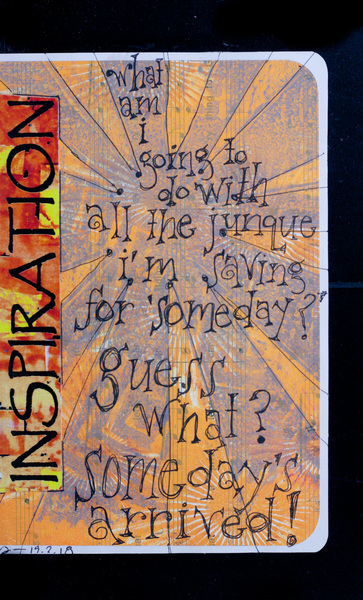 INSPIRATION
what
am
i
going to
do with
all the junque
i'm saving
for 'someday'?
guess
what?
someday's
arrived!
19.2.18